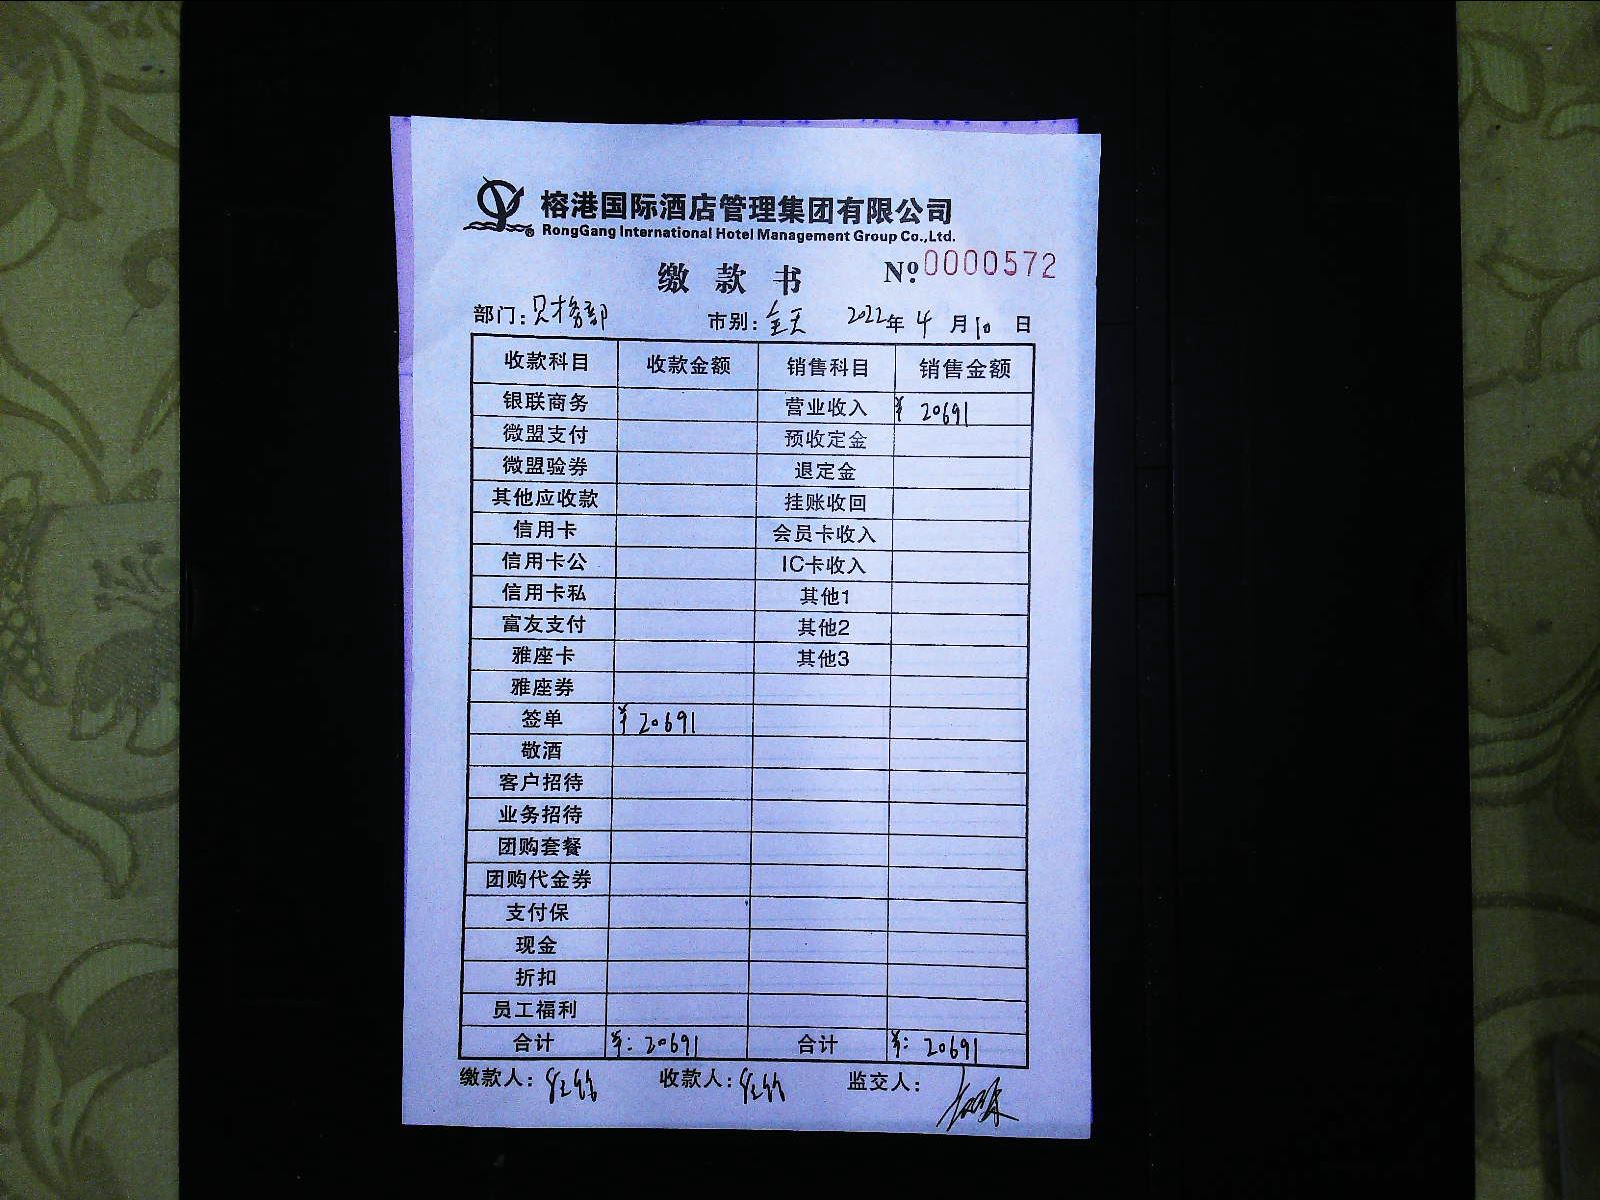 榕港国际酒店管理集团有限公司
RongGang International Hotel Management Group Co.,Ltd.
缴款书 №.0000572
部门:财务部 市别:全天 2022年4月10日
收款科目 收款金额 销售科目 销售金额
银联商务 营业收入 ¥ 20691
微盟支付 预收定金
微盟验券 退定金
其他应收款 挂账收回
信用卡 会员卡收入
信用卡公 IC卡收入
信用卡私 其他1
富友支付 其他2
雅座卡 其他3
雅座券
签单 ¥ 20691
敬酒
客户招待
业务招待
团购套餐
团购代金券
支付保
现金
折扣
员工福利
合计 ¥: 20691 合计 ¥: 20691
缴款人: 收款人: 监交人: